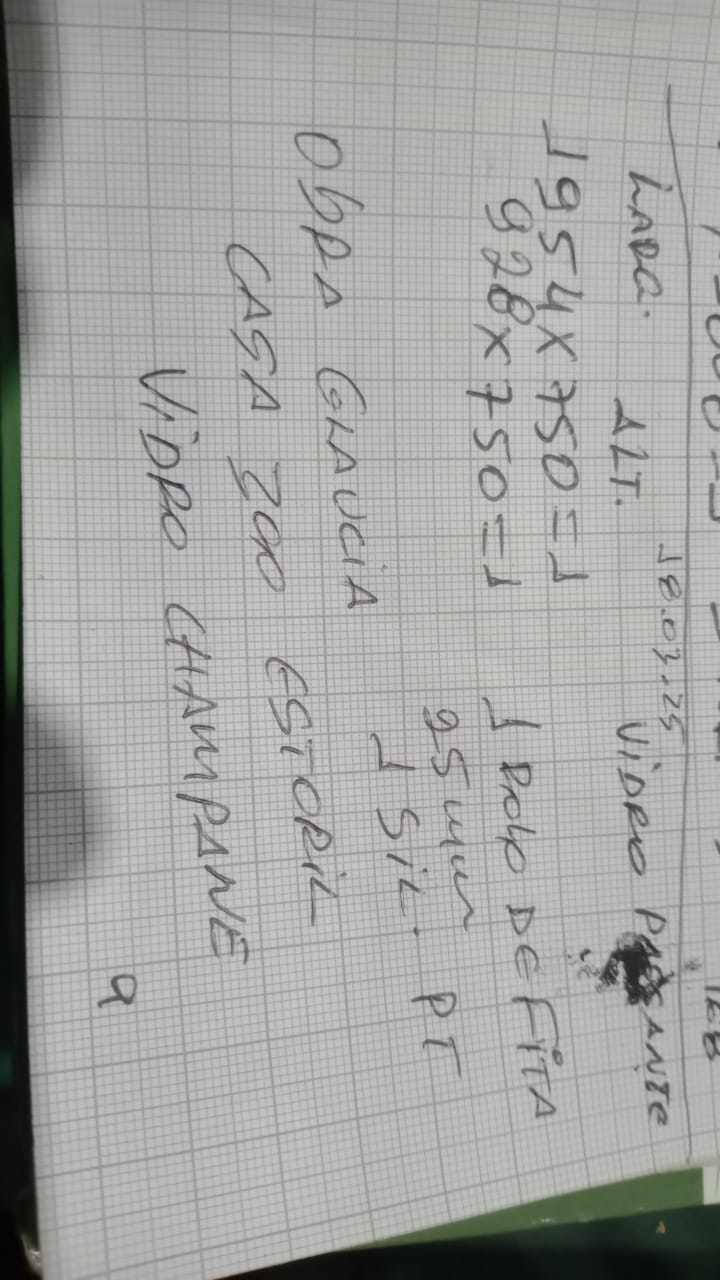 18.03.25
LARG. ALT. VIDRO PASSANTE
1954X750=1
928X750=1 1 ROLO DE FITA
95 mm
1 SIL. PT
ObRA GLAUCIA
CASA 200 ESTORIL
VIDRO CHAMPANE